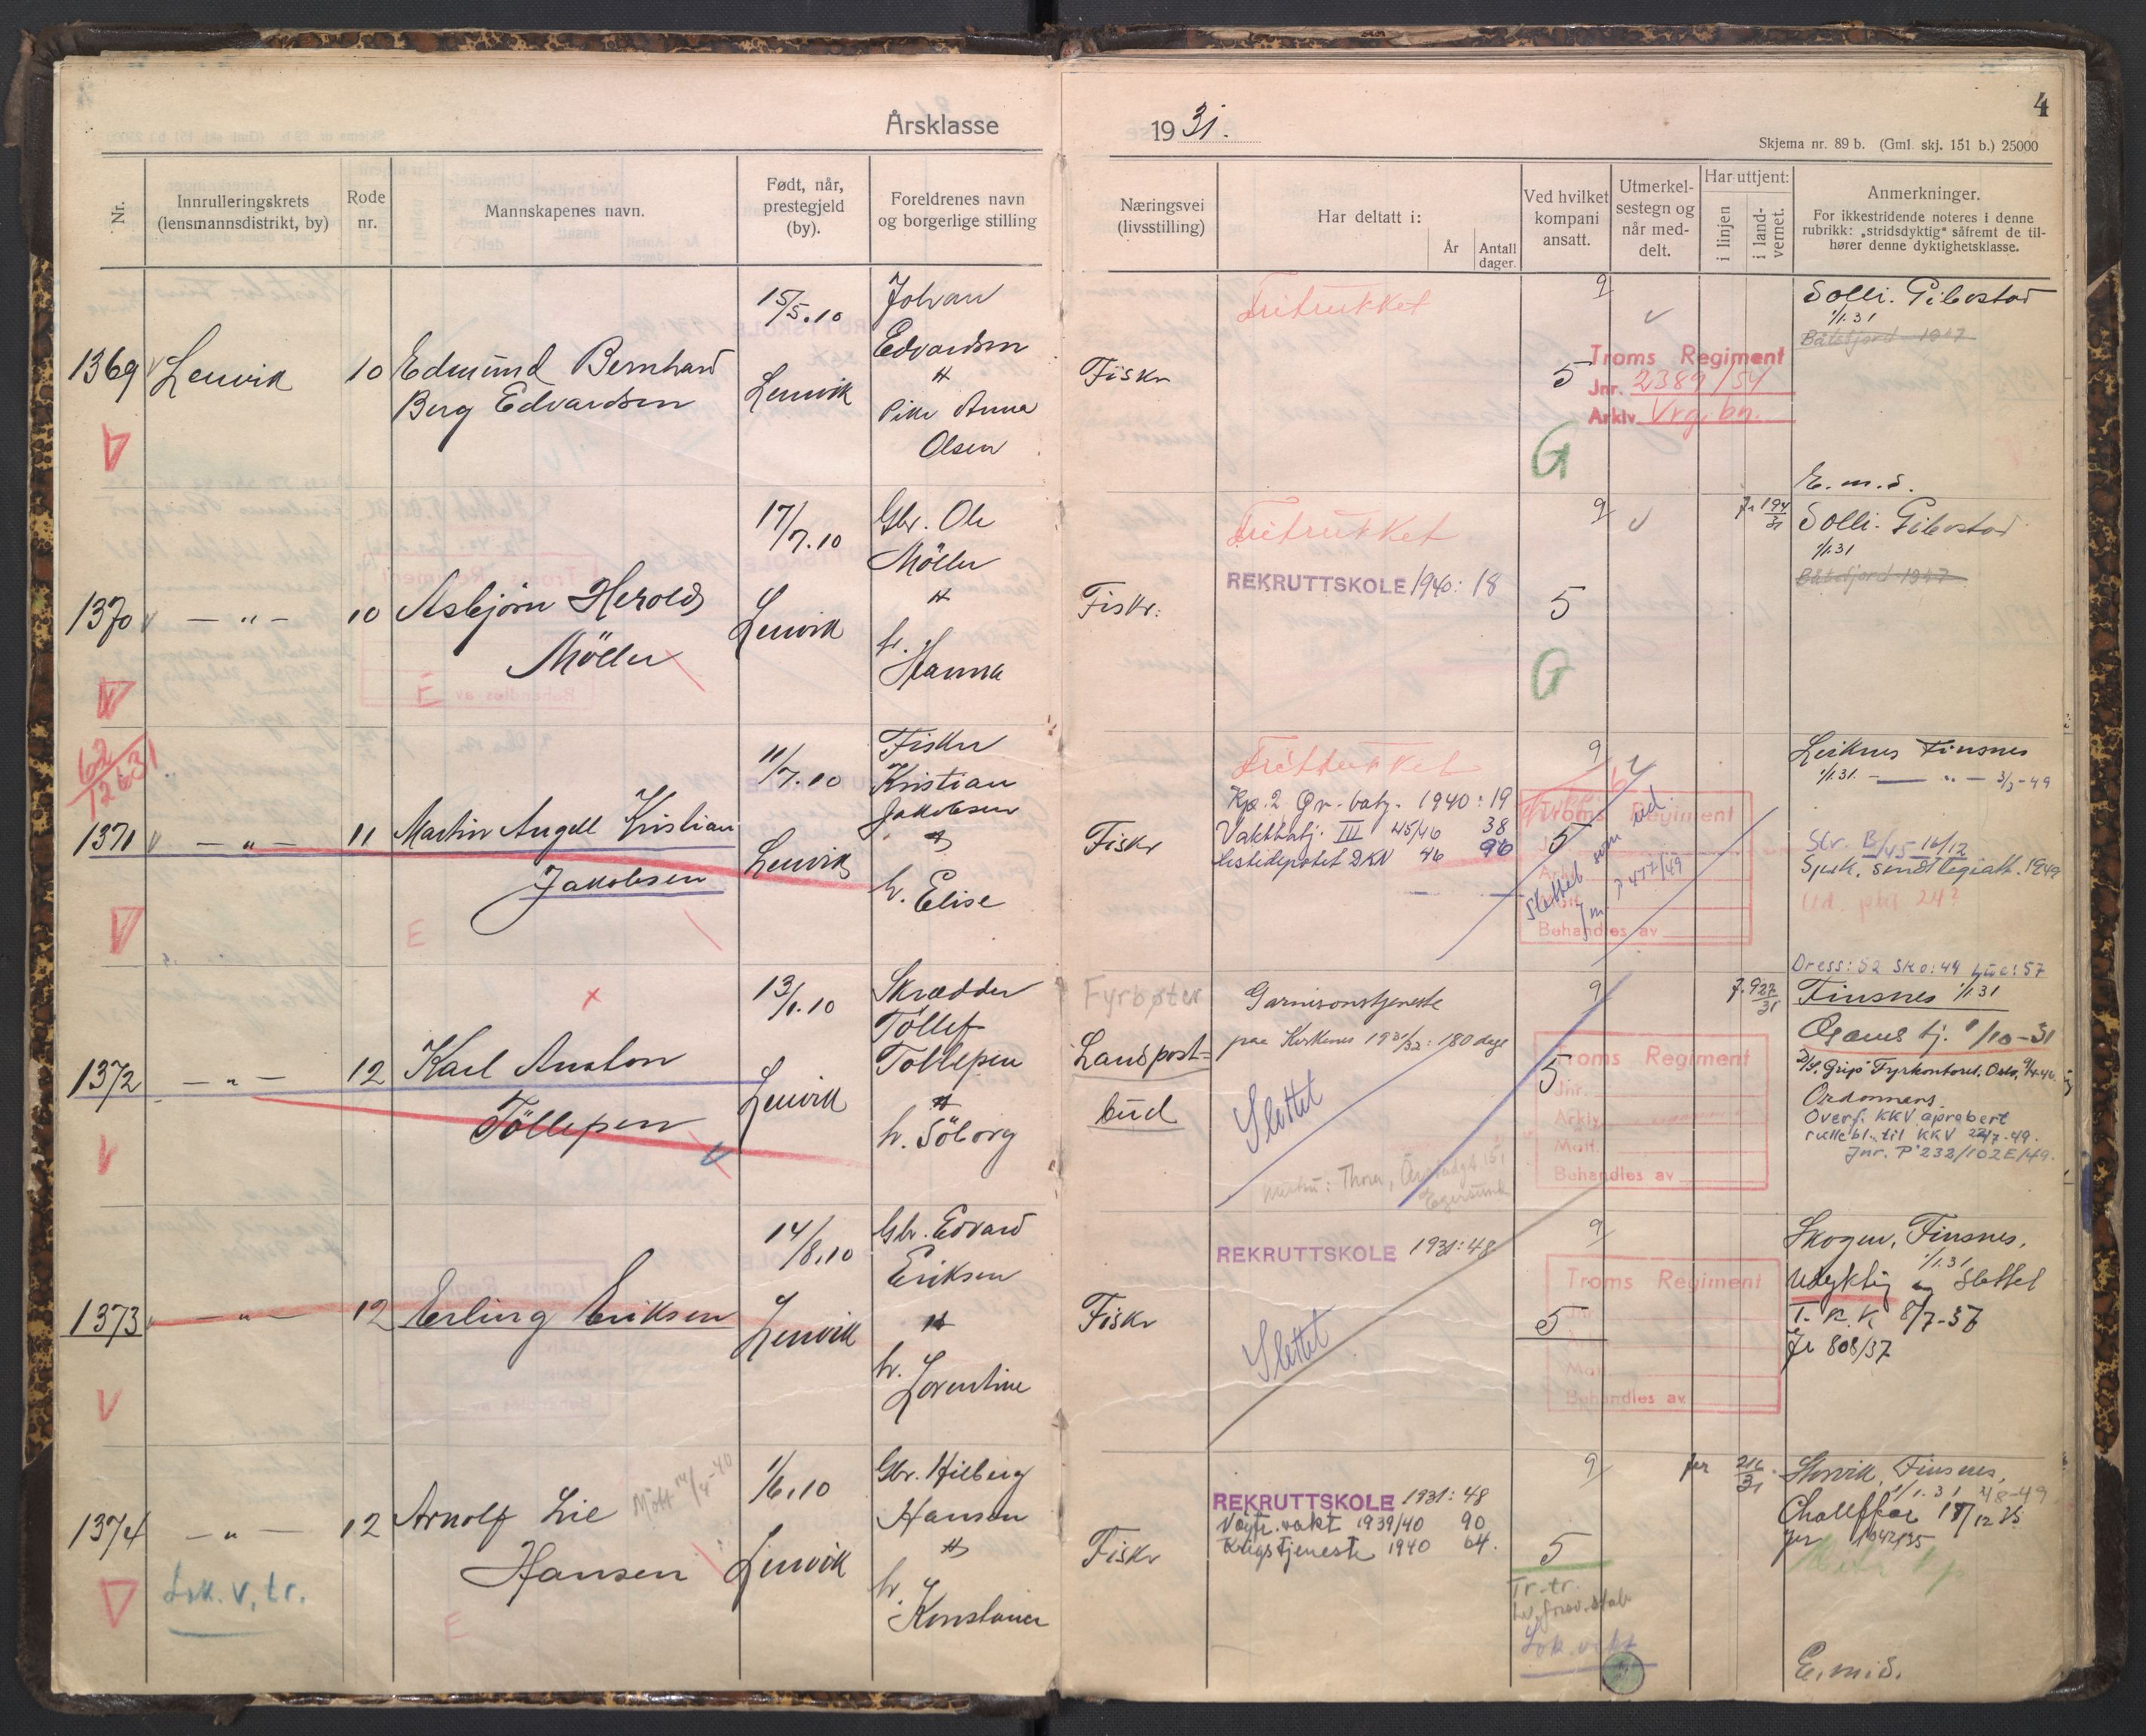 Årsklasse
1931.
4
Skjema nr. 89 b. (Gml. skj. 151 b.) 25000
Nr.
Innrulleringskrets
(lensmannsdistrikt, by)
Rode
nr.
Mannskapenes navn.
Født, når,
prestegjeld
(by).
Foreldrenes navn
og borgerlige stilling
Næringsvei
(livsstilling)
Har deltatt i:
År
Antall
dager.
Ved hvilket
kompani
ansatt.
Utmerkel-
sestegn og
når med-
delt.
Har uttjent:
i linjen
i land-
vernet.
Anmerkninger.
For ikkestridende noteres i denne
rubrikk: „stridsdyktig“ såfremt de til-
hører denne dyktighetsklasse.
1369
Lenvik
10
Edmund Bernhard
Berg Edvardsen
15/5.10
Lenvik
Johan
Edvardsen
Pike Anna
Olsen
Fisker
Fritrukket
9
5
G
Troms Regiment
Jnr. 2389/54
Arkiv Vrg. bn.
Solli. Gibostad
1/1.31
Båtsfjord 1947
E.m.s.
1370
— " —
10
Asbjørn Herold
Möller
17/7.10
Lenvik
Gbr. Ole
Möller
h.
Hanna
Fisker.
Fritrukket
REKRUTTSKOLE 1940: 18
9
5
G
194/31
Solli. Gibostad
1/1.31
Båtsfjord 1947
62/12631
1371
— " —
11
Martin Angell Kristian
Jakobsen
E
11/7.10
Lenvik
Fisker
Kristian
Jakobsen
h. Elise
Fisker
Fritrukket
Kp. 2 Gr. batj. 1940: 19
Vaktbatj. III 45/46 38
Listedepotet DKN 46 96
9
5
Troms Regiment
Slettet som ud.
Jnr. 2477/49
Behandles av
Leiknes Finsnes
1/1.31. — " — 3/3-49
Str. B/45 16/12
Sjuk. sendt legiatt. 1949
Ud. pkt 24?
Dress: 52 Sko: 44 Lue: 57
1372
— " —
12
Karl Anston
Töllefsen
13/1.10
Lenvik
Skrædder
Töllef
Tollefsen
h. Söborg
Fyrbøter
Landpost=
bud
Garnisonstjeneste
paa Kirkenes 1931/32: 180 dage
Slettet
9
5
Troms Regiment
Jnr.
Arkiv
Mott.
Behandles av
927/31
Finsnes 1/1 31
Garns tj. 1/10-31
D/S. Grip Fyrkontoret, Oslo,
Ordonnans.
Overf. KKV aprobert
rullebl. til KKV 22/7-49.
Jnr. P 232/102E/49.
1373
— " —
12
Erling Eriksen
14/8.10
Lenvik
Gbr. Edvard
Eriksen
h.
Lorentine
Fisker
REKRUTTSKOLE 1931: 48
Slettet
9
5
Troms Regiment
Mott.
Behandles av
Skogen, Finsnes.
1/1.31
Udyktig og slettet
T. R. K 8/7-37
Jr 808/37
1374
— " —
12
Arnolf Lie
Hansen
Møtt 14/4-40
E
Lok. v. tr.
1/6.10
Lenvik
Gbr. Hilberg
Hansen
h.
Konstanse
Fisker
REKRUTTSKOLE 1931: 48
Nøytr. vakt 1939/40 90
Krigstjeneste 1940 64.
9
5
Tr. tr.
Lv. forsv. stab
Lok. vakt
216/31
Storvik, Finsnes,
1/1.31
Chauffør 17/12 35
jnr 1042/35
E.m.s.